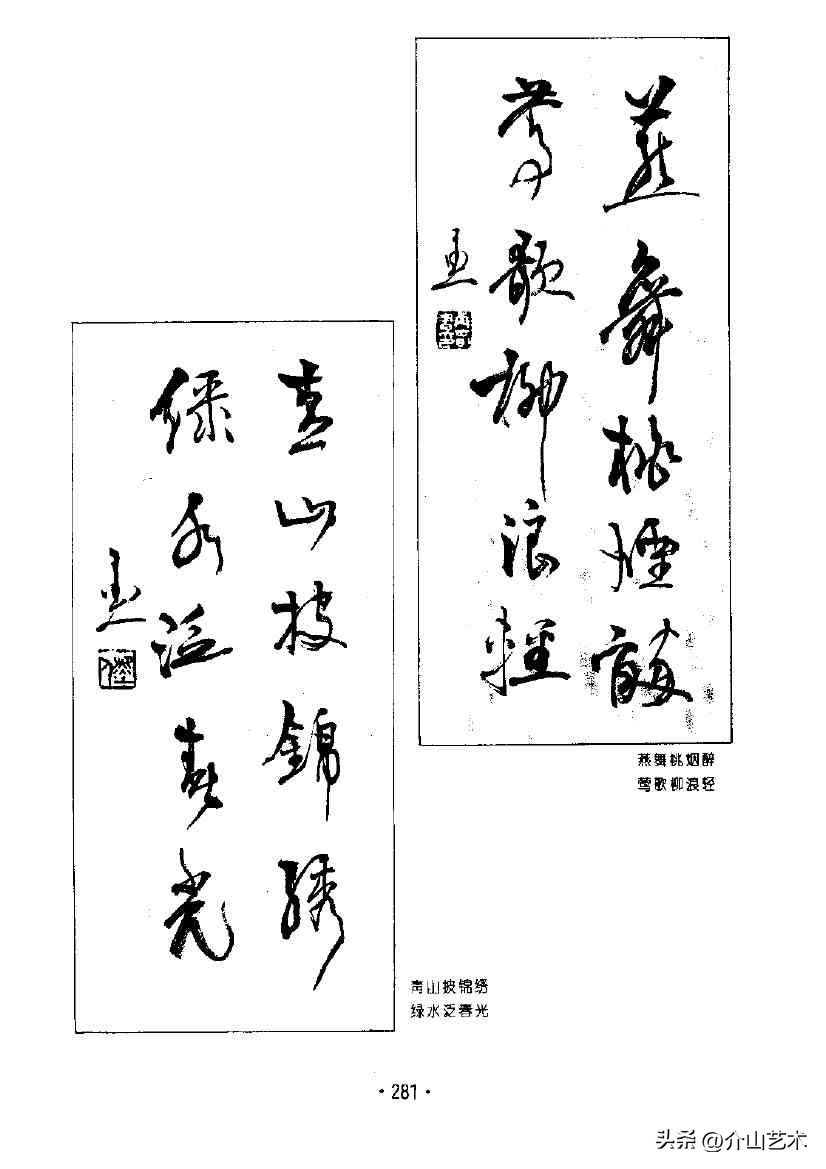 燕舞桃煙醉
莺歌柳浪輕
燕舞桃烟醉
莺歌柳浪轻
青山披錦綉
绿水泛春光
青山披锦绣
绿水泛春光
·281·
头条 @介山艺术